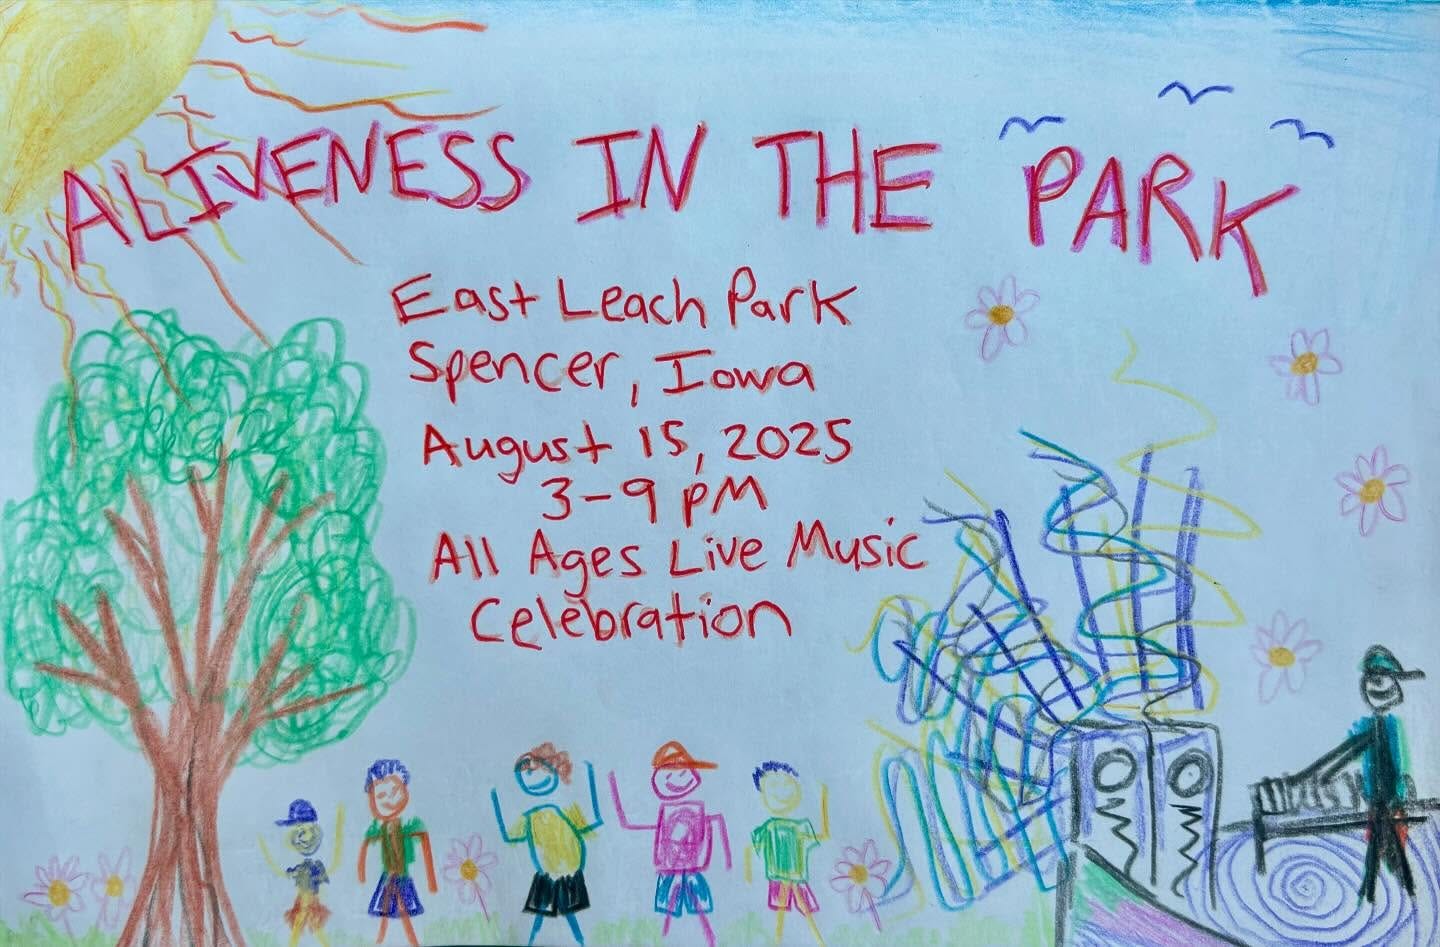 ALIVENESS IN THE PARK
East Leach Park
Spencer, Iowa
August 15, 2025
3-9 pM
All Ages Live Music
Celebration